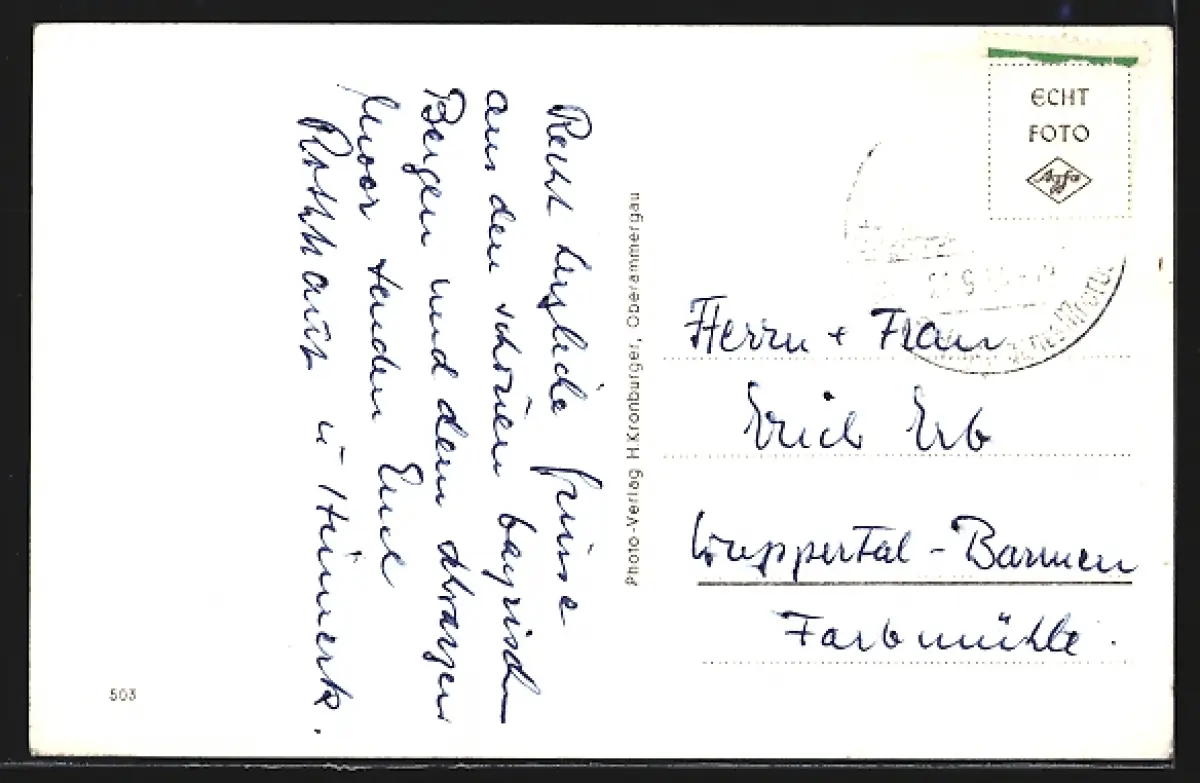 Recht herzliche Grüsse
aus den schönen bayrisch
Bergen und dem schwarzen
Moor senden Euch
Rotthaus u
Photo-Verlag H.Kronburger, Oberammergau
ECHT
FOTO
Agfa
Herrn + Frau
Erich Erb
Wuppertal - Barmen
Farbmühle.
503